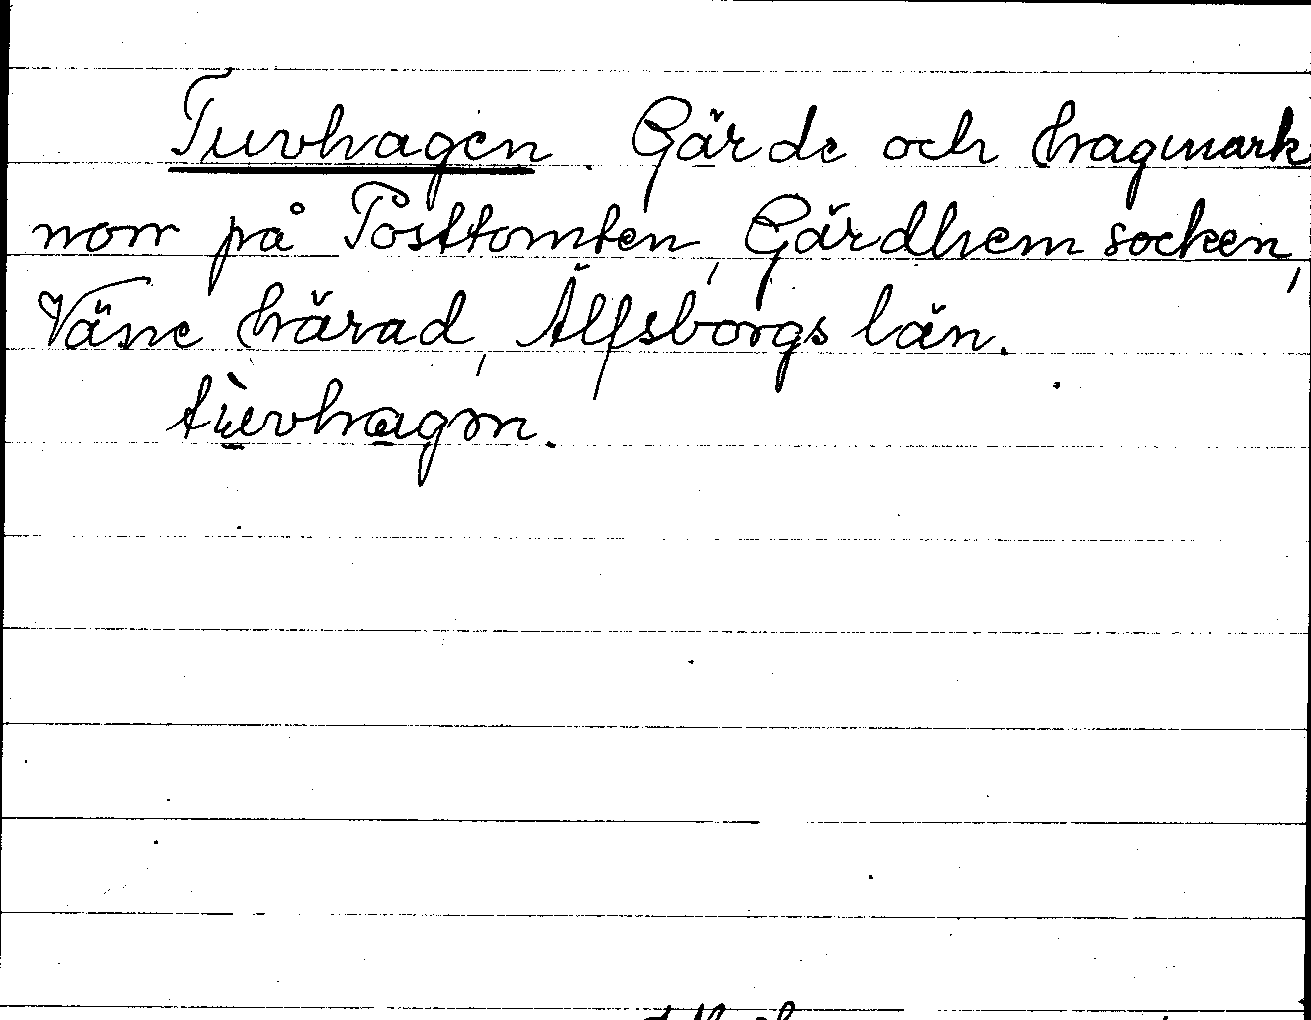 Tuvhagen. Gärde och hagmark
norr på Posttomten, Gärdhem socken,
Väne härad, Älfsborgs län.
tùvhagən.